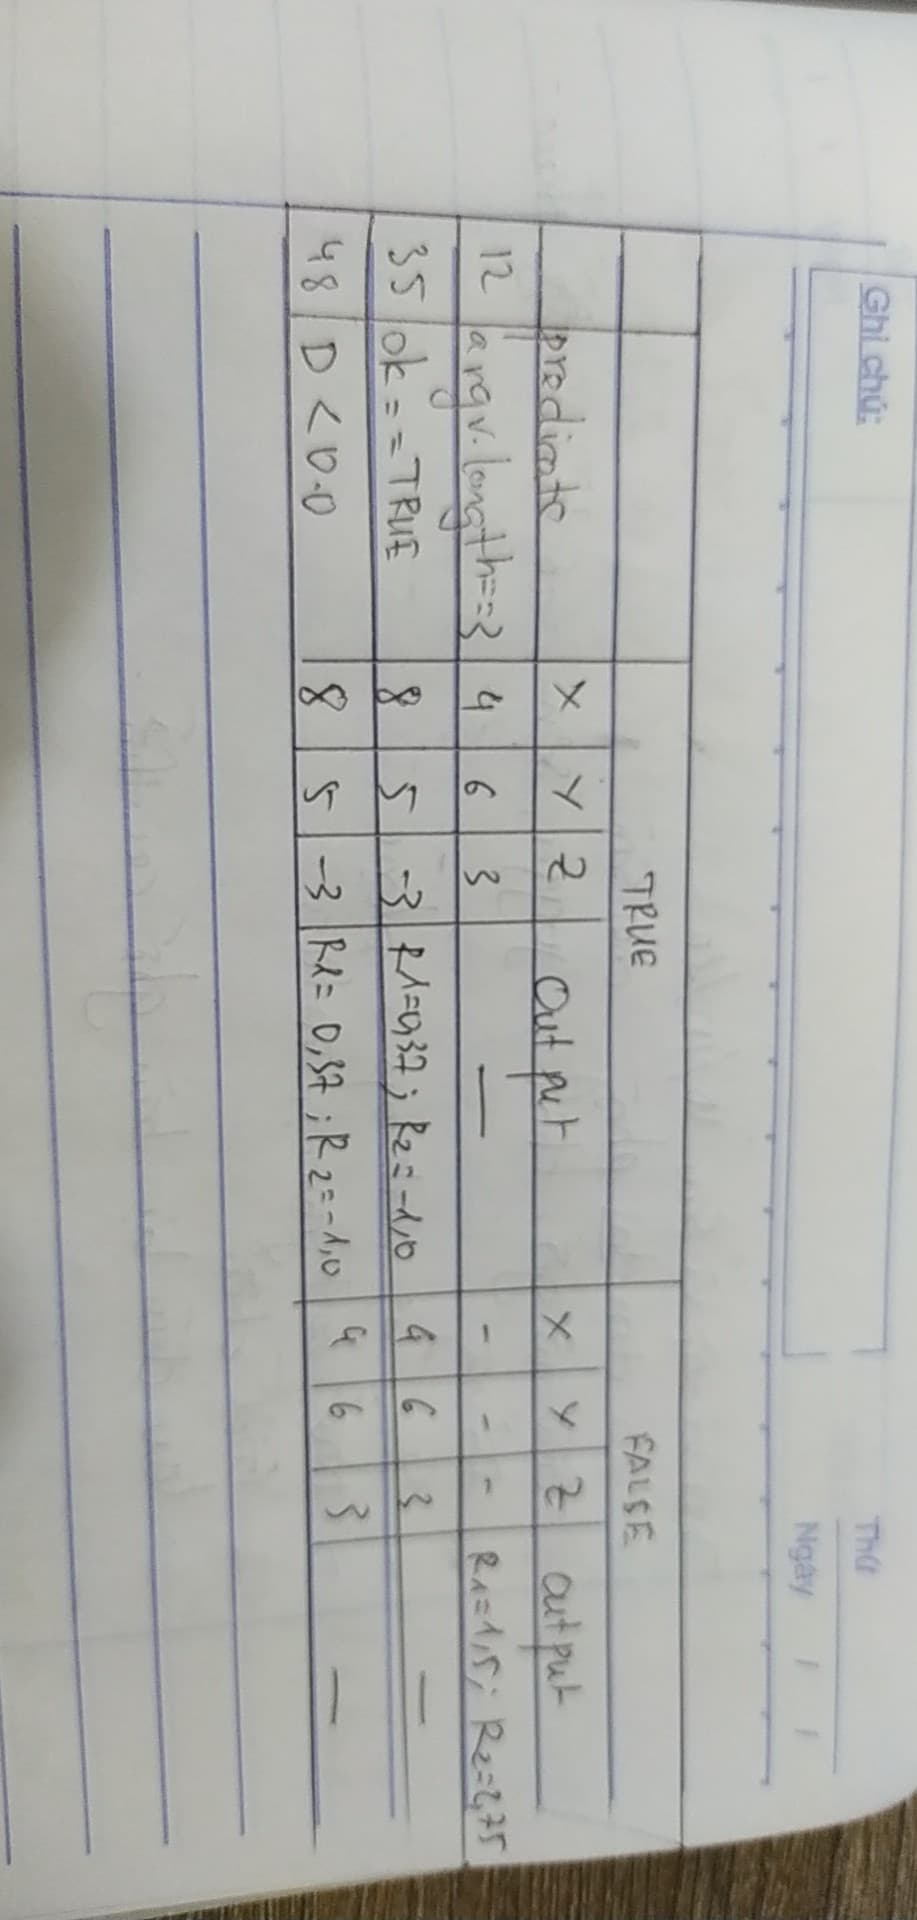 Ghi chú:
Thứ
Ngày / /
TRUE FALSE
predicate X Y Z Output X Y Z output
12 argv.length==3 4 6 3 — - - - R1=1,5; R2=2,75
35 ok==TRUE 8 5 -3 R1=0,37; R2=-1,0 4 6 3 —
48 D<0.0 8 5 -3 R1=0,37; R2=-1,0 4 6 3 —